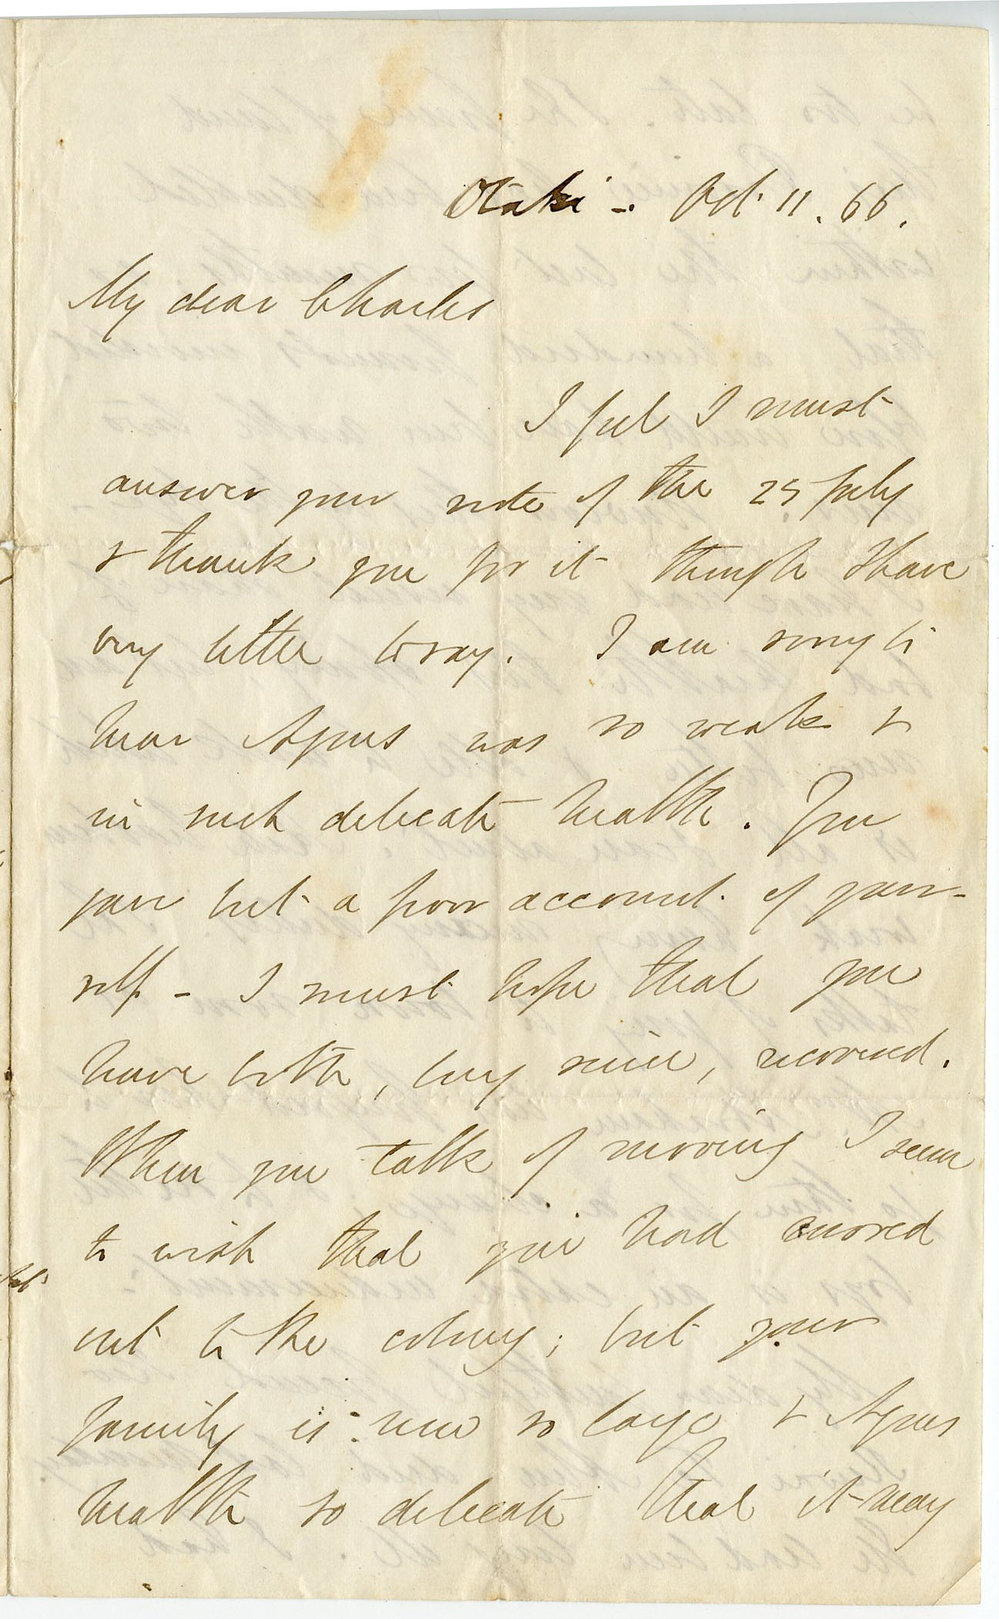 Otaki - Oct. 11. 66.
My dear Charles
I feel I must
answer your note of the 25 July
& thank you for it though I have
very little to say. I am sorry to
hear Agnes was so weak &
in such delicate health. You
gave but a poor account of your-
self - I must hope that you
have both, long since, recovered.
When you talk of moving I seem
to wish that you had moved
out to the colony; but your
family is now so large & Agnes
health so delicate that it may